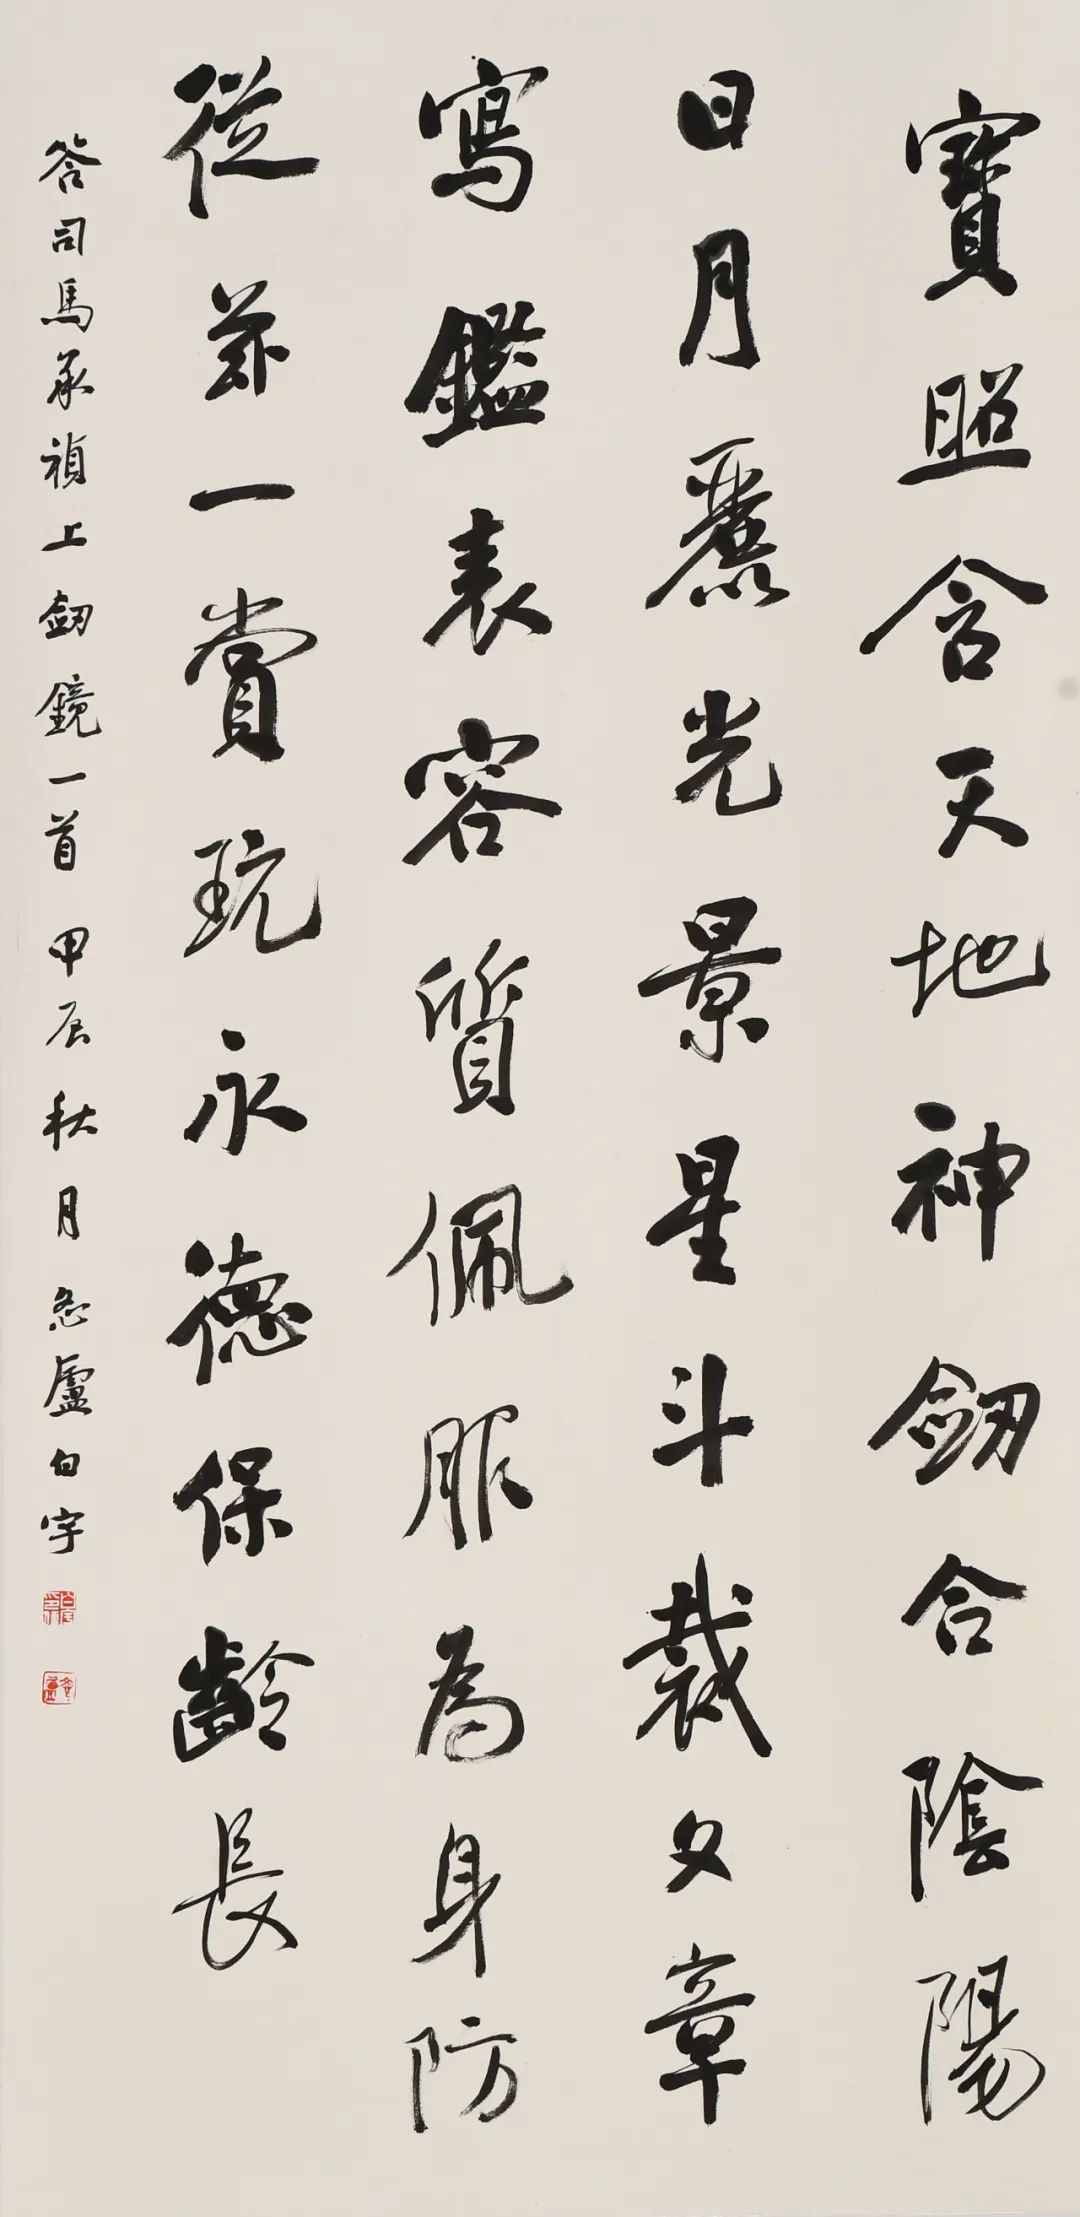 寶照含天地神劔合陰陽
日月麗光景星斗裁文章
寫鑑表容質佩服為身防
從茲一賞玩永德保齡長
答司馬承禎上劔鏡一首 甲辰秋月 盧白宇